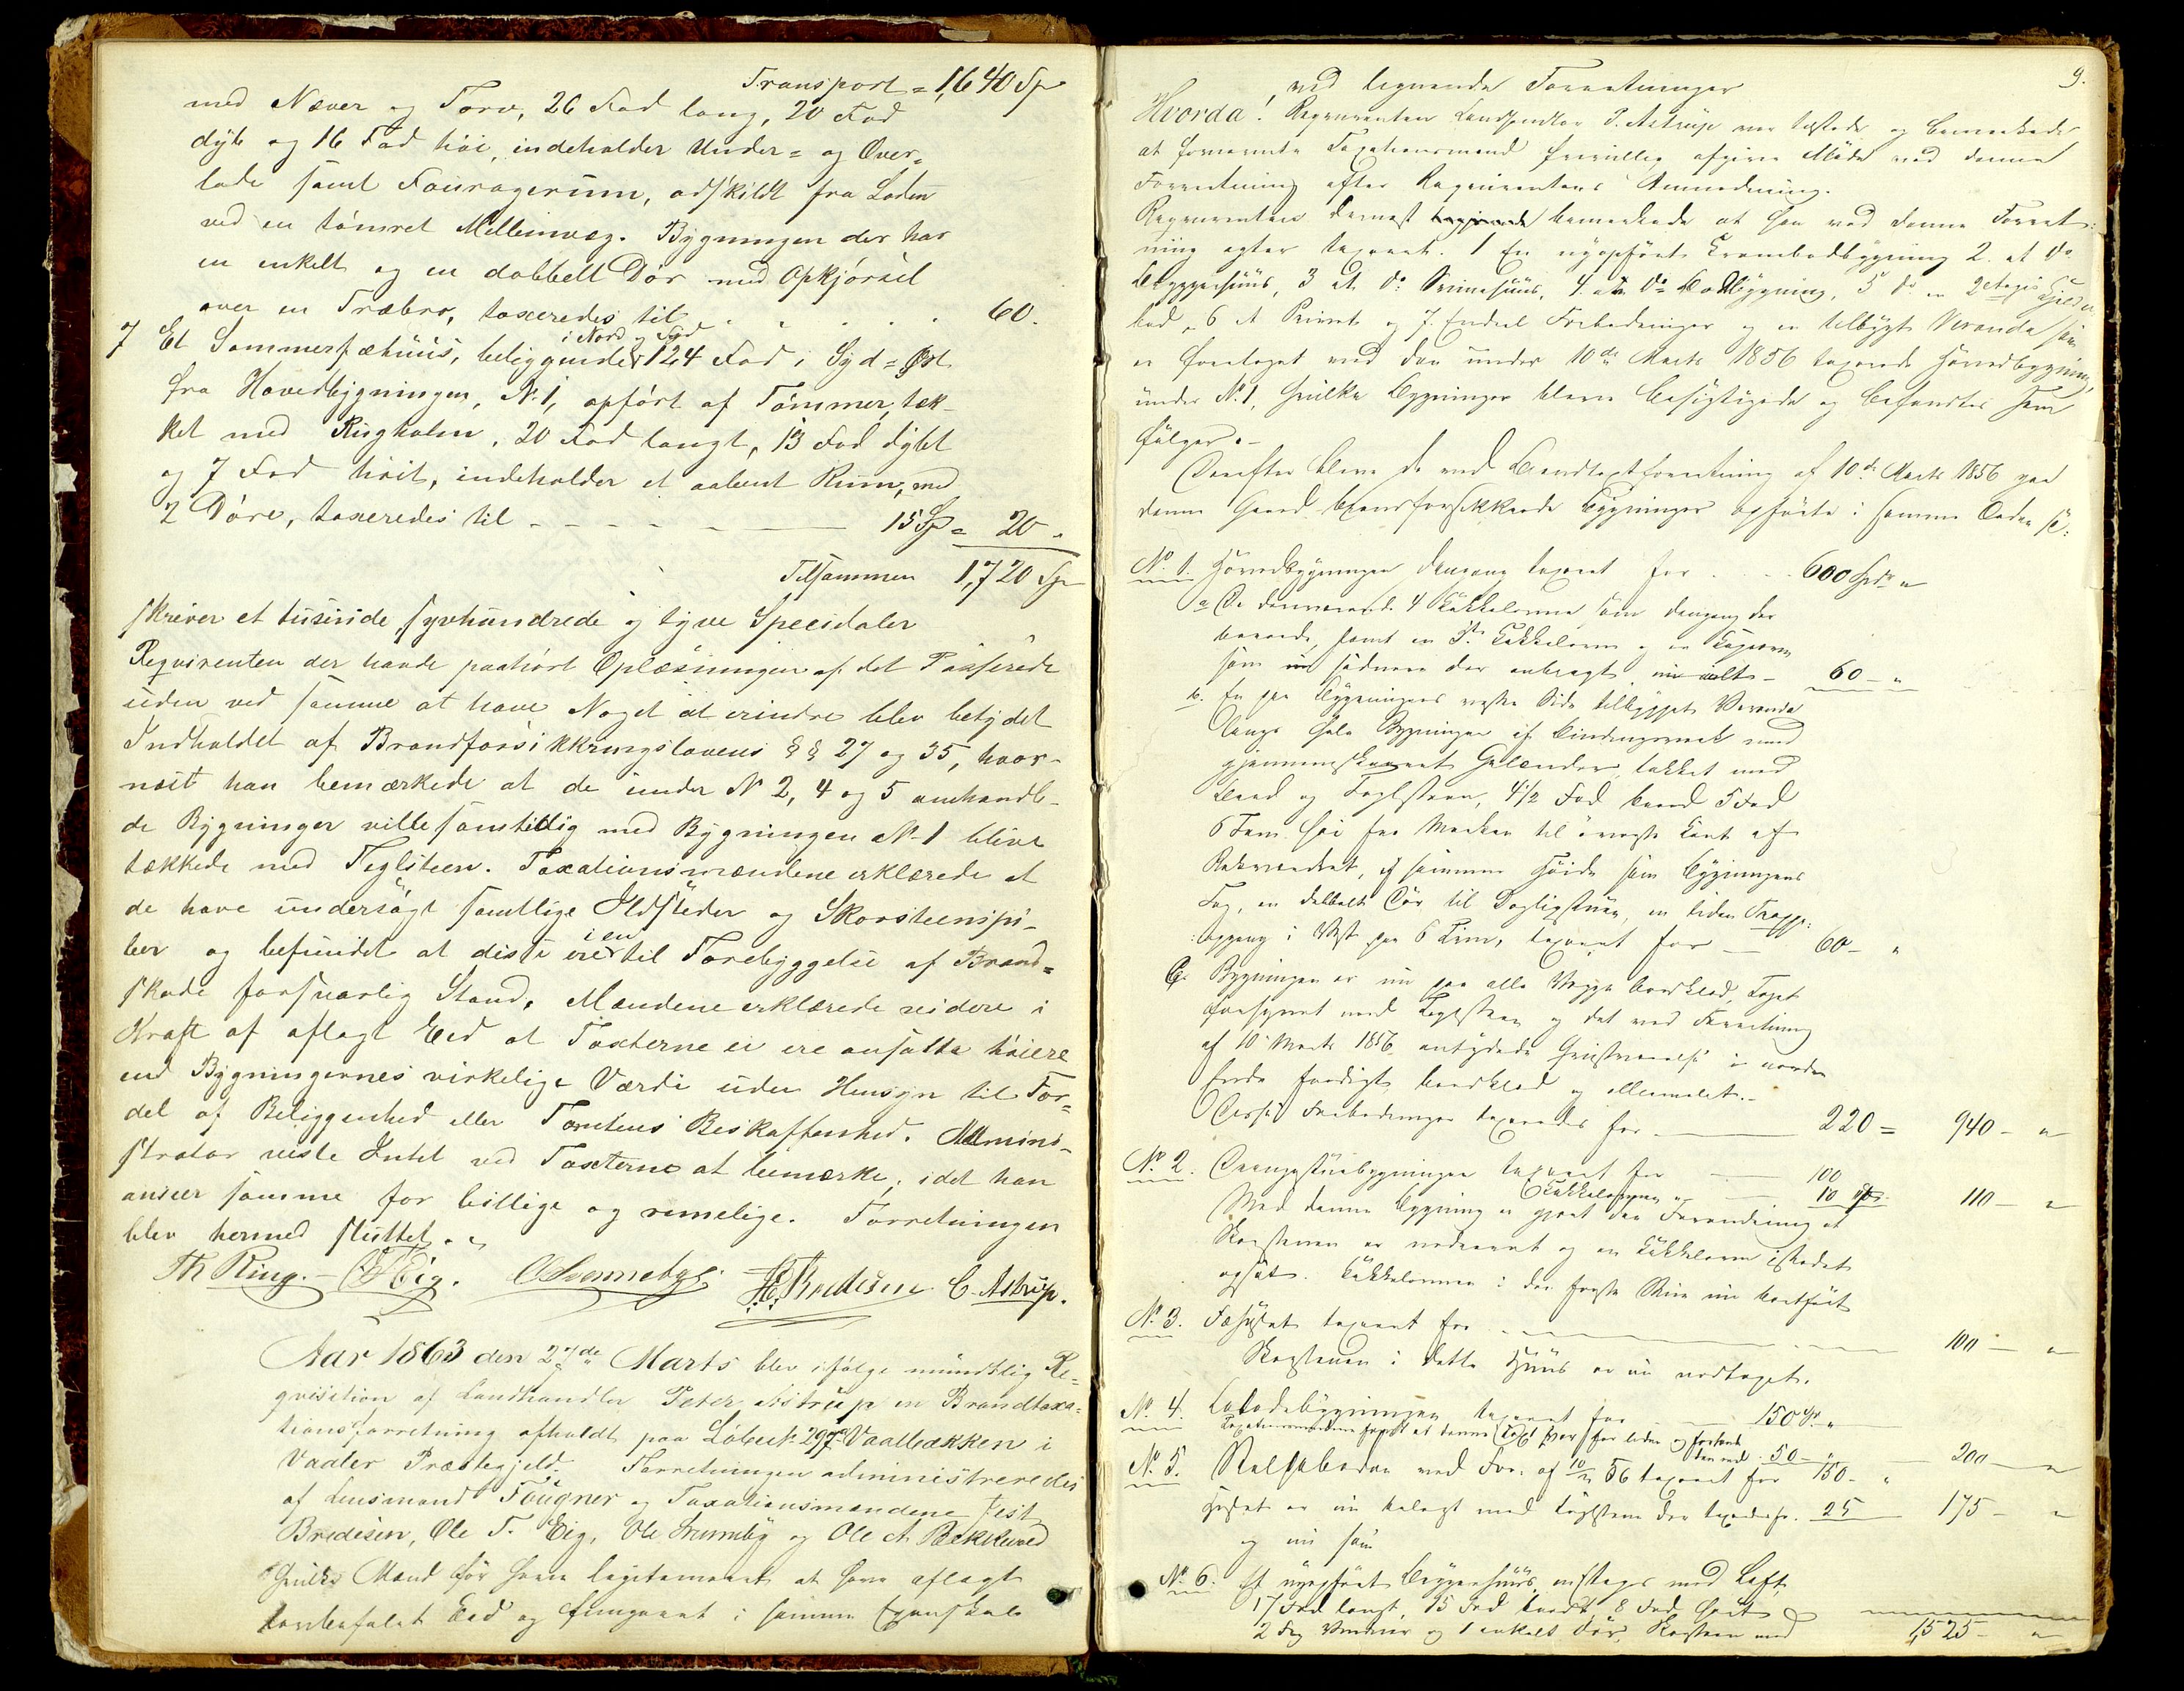 Transport = 1,640 Sp
med Næver og Torv, 26 Fod lang, 20 Fod
dyb og 16 Fod höi, indeholder Under= og Over=
lade samt Fouragerum, adskildt fra Laden
ved en tömret Mellemvæg. Bygningen der har
en enkelt og en dobbelt Dör med Opkjörsel
over en Træbro, taxeredes til . . . . . 60.
7 Et Sommerfæhuus, beliggende 124 Fod i Syd=Øst
i Nord og Syd
fra Hovedbygningen, No 1, opfört af Tömmer, tæk-
ket med Rughalm, 20 Fod langt, 13 Fod dybt
og 7 Fod höit, indeholder et aabent Rum, med
2 Döre, taxeredes til - - - - 15 Sp = 20 "
Tilsammen 1,720 Sp
skriver et tusinde syvhundrede og tyve Speciedaler
Reqvirenten der havde paahört Oplæsningen af det Passerede
uden ved samme at have Noget at erindre blev betydet
Indholdet af Brandforsikkringslovens §§ 27 og 35, hvor-
næst han bemærkede at de under No 2, 4 og 5 omhandle-
de Bygninger ville samtidig med Bygningen No 1 blive
tækkede med Teglsteen. Taxationsmændene erklærede at
de have undersögt samtlige Ildsteder og Skorsteenspi-
ber og befundet at disse ere i en til Forebyggelse af Brand=
skade forsvarlig Stand. Mændene erklærede videre i
Kraft af aflagt Eed at Taxterne ei ere ansatte höiere
end Bygningernes virkelige Værdi uden Hensyn til For=
del af Beliggenhed eller Tomtens Beskaffenhed. Admini-
strator viste Intet ved Taxterne at bemærke, idet han
anseer samme for billige og rimelige. Forretningen
blev hermed sluttet. "
Th Ring. - O T Eig. O Svenneby JE Bredesen C. Astrup.
Aar 1863 den 27de Marts blev ifölge mundtlig Re=
qvisition af Landhandler Peter Astrup en Brandtaxa=
tionsforretning afholdt paa Löbe No 297 Vaalbækken i
Vaaler Præstegjeld. Forretningen administreredes
af Lensmand Fougner og Taxationsmændene Jest
Bredesen, Ole T. Eig, Ole Svenneby og Ole A. Bækkeved
hvilke Mænd för have legitimeret at have aflagt
lovbefalet Eed og fungeret i samme Egenskab
9.
ved lignende Forretninger
Hvorda! Reqvirenten Landhandler P. Astrup var tilstede og bemærkede
at fornævnte Taxationsmænd frivillig afgive Möde ved denne
Forretning efter Reqvirentens Anmodning.
Reqvirenten dernæst bemærkede at han ved denne Forret=
ning agter taxeret. 1 En nyopfört Krambodbygning 2. et do
Bryggerhuus, 3 et do Svinehuus, 4. en do Bodbygning, 5 do en 2 etages
6 et Privet og 7. Endeel Forbedringer og en tilbygt Veranda som
er foretaget med den under 10de Marts 1856 taxerede Hovedbygning,
under No 1, hvilke Bygninger bleve besigtigede og befandtes som
fölger. -
Derefter bleve de ved Brandtaxtforretning af 10de Marts 1856 paa
denne Gaard brandforsikkrede Bygninger opförte i samme Orden so:
No 1. Hovedbygningen dengang taxeret for . . 600 Spd "
a De derværende 4 Kakkelovne som dengang der
beroede, samt en 5te Kakkelovn og en
som nu sednere der anbragt, nu ialt - 60 - "
b. En paa Bygningens vestre Side tilbygget Veranda
langs hele Bygningen af Bindingsværk med
gjennemskaaret Gelænder, tækket med
Bord og Teglsteen, 4 1/2 Fod bred 5 Fod
6 Tom. höi fra Marken til överste Kant af
Rækværket, af samme Höide som Bygningens
Tag, en dobbelt Dör til Dagligstuen, en liden Trappe:
opgang i Vest paa 6 Trin, taxeret for - 60 - "
c. Bygningen er nu paa alle Vægge bordklæd, Taget
forsynet med Teglsteen og det ved Forretning
af 10 Marts 1856 antydede Gjesteværelse i nordre
Ende færdigt, bordklæd og oliemalet. -
Disse Forbedringer taxeredes for - 220 = 940 - "
No 2. Drengestuebygningen taxeret for - 100
Kakkelovnen - 10 Sp. 110 - "
Med denne Bygning er gjort den Forandring at
Skorstenen er nedrevet og en Kakkelovn istedet
opsat. Kakkelovnen i det förste Rum nu bortfört
No 3. Fæhuset taxeret for - 100 - "
Skorstenen i dette Huus er nu nedtaget.
No 4. Ladebygningen taxeret for - 150 Sp. "
Taxationsmændene fandt at denne Taxt var for liden og forhöiede
den med 50 - " 200 - "
No 5. Stolpeboden ved Forr. af 10/3 56 taxeret for 150 - "
Huset er nu belagt med Teglsteen der taxeredes for 25 175 - "
og nu som
No 6. Et nyopfört Bryggerhuus, enetages med Loft,
17 Fod langt, 15 Fod bredt, 8 Fod höit
2 Fag Vinduer og 1 enkelt Dör, Skorsteen med
1,525 - "